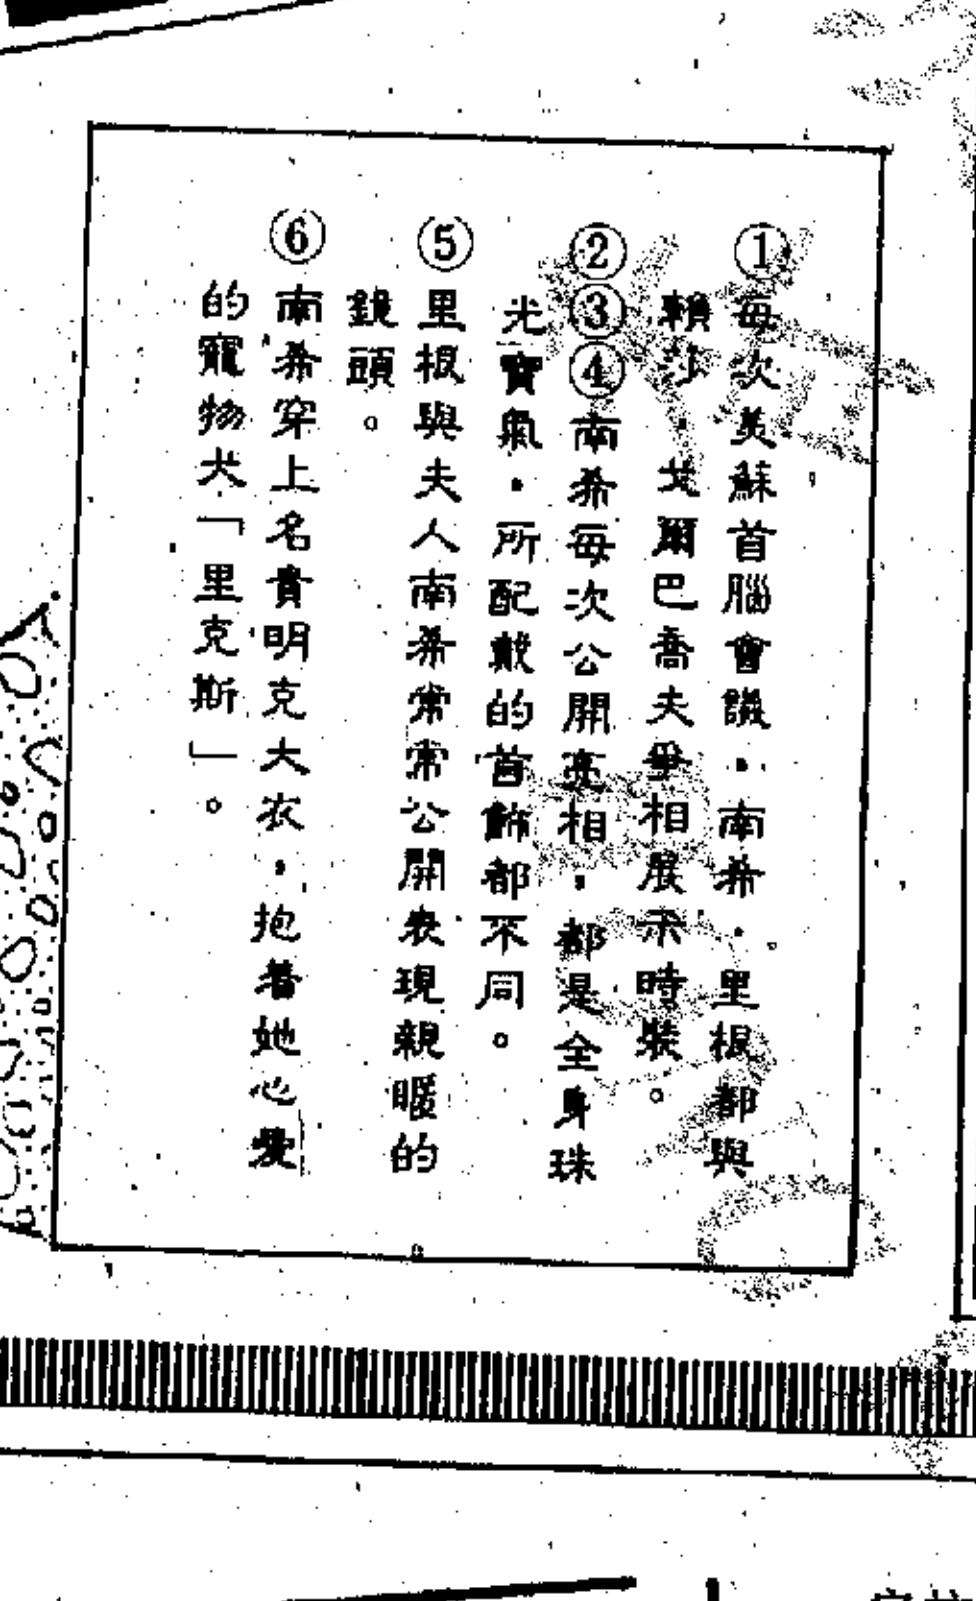 ①每次美蘇首腦會議，南希·里根都與
賴莎·戈爾巴喬夫爭相展示時裝。
②③④南希每次公開亮相，都是全身珠
光寶氣，所配戴的首飾都不同。
⑤里根與夫人南希常常公開表現親暖的
鏡頭。
⑥南希穿上名貴明克大衣，抱着她心愛
的寵物犬「里克斯」。